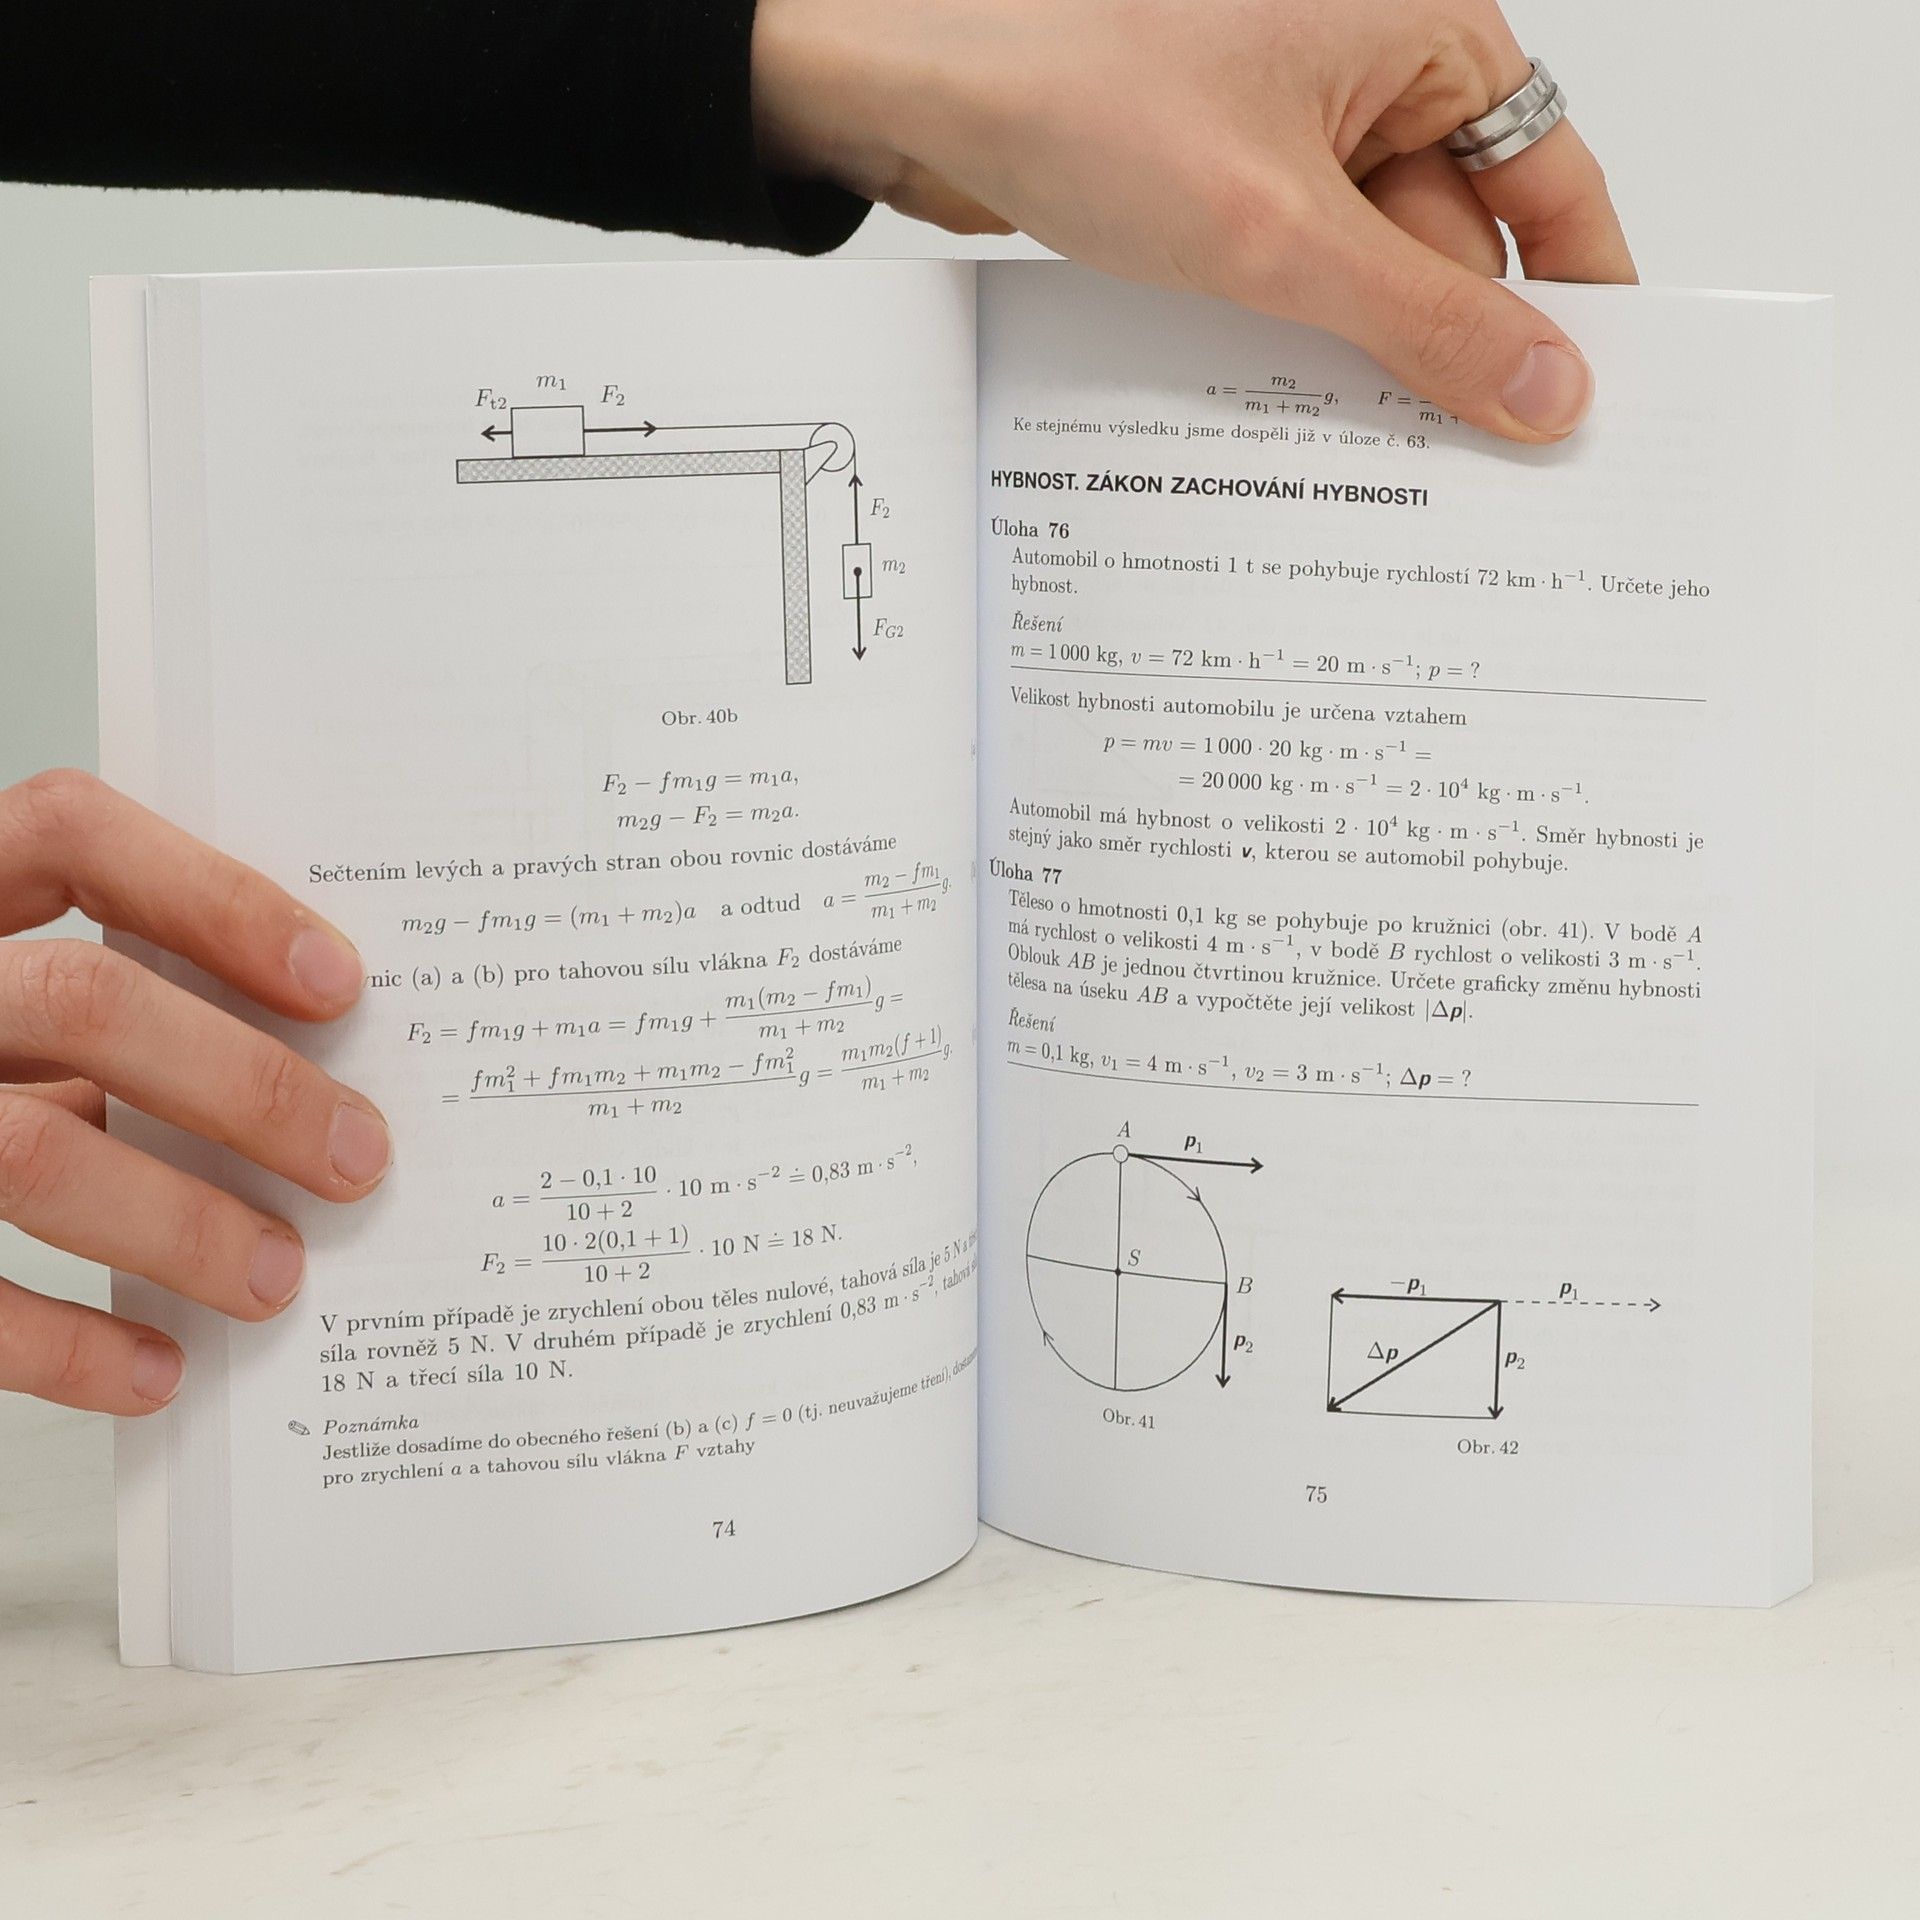 m₁
F_t2
F₂
F₂
m₂
F_G2
Obr. 40b
F₂ − fm₁g = m₁a,
m₂g − F₂ = m₂a.
Sečtením levých a pravých stran obou rovnic dostáváme
m₂g − fm₁g = (m₁ + m₂)a a odtud a = (m₂ − fm₁)/(m₁ + m₂) g.
(a) a (b) pro tahovou sílu vlákna F₂ dostáváme
F₂ = fm₁g + m₁a = fm₁g + m₁(m₂ − fm₁)/(m₁ + m₂) g =
= (fm₁² + fm₁m₂ + m₁m₂ − fm₁²)/(m₁ + m₂) g = m₁m₂(f + 1)/(m₁ + m₂) g.
a = (2 − 0,1 · 10)/(10 + 2) · 10 m · s⁻² ≐ 0,83 m · s⁻²,
F₂ = 10 · 2(0,1 + 1)/(10 + 2) · 10 N ≐ 18 N.
V prvním případě je zrychlení obou těles nulové, tahová síla je 5 N a
síla rovněž 5 N. V druhém případě je zrychlení 0,83 m · s⁻², tahová
18 N a třecí síla 10 N.
✎ Poznámka
Jestliže dosadíme do obecného řešení (b) a (c) f = 0 (tj. neuvažujeme tření),
pro zrychlení a a tahovou sílu vlákna F vztahy
74
a = m₂/(m₁ + m₂) g, F =
m₁
Ke stejnému výsledku jsme dospěli již v úloze č. 63.
HYBNOST. ZÁKON ZACHOVÁNÍ HYBNOSTI
Úloha 76
Automobil o hmotnosti 1 t se pohybuje rychlostí 72 km · h⁻¹. Určete jeho
hybnost.
Řešení
m = 1 000 kg, v = 72 km · h⁻¹ = 20 m · s⁻¹; p = ?
Velikost hybnosti automobilu je určena vztahem
p = mv = 1 000 · 20 kg · m · s⁻¹ =
= 20 000 kg · m · s⁻¹ = 2 · 10⁴ kg · m · s⁻¹.
Automobil má hybnost o velikosti 2 · 10⁴ kg · m · s⁻¹. Směr hybnosti je
stejný jako směr rychlosti v, kterou se automobil pohybuje.
Úloha 77
Těleso o hmotnosti 0,1 kg se pohybuje po kružnici (obr. 41). V bodě A
má rychlost o velikosti 4 m · s⁻¹, v bodě B rychlost o velikosti 3 m · s⁻¹.
Oblouk AB je jednou čtvrtinou kružnice. Určete graficky změnu hybnosti
tělesa na úseku AB a vypočtěte její velikost |Δp|.
Řešení
m = 0,1 kg, v₁ = 4 m · s⁻¹, v₂ = 3 m · s⁻¹; Δp = ?
A
p₁
S
B
p₂
Obr. 41
−p₁
p₁
Δp
p₂
Obr. 42
75